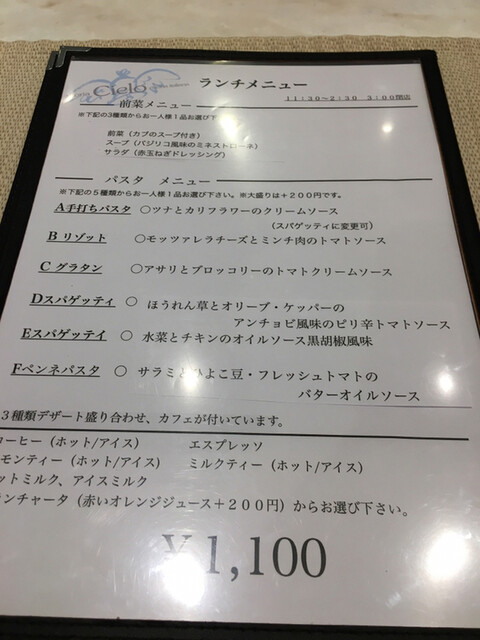 Cielo
ランチメニュー
11:30~2:30 3:00閉店
前菜メニュー
※下記の3種類からお一人様1品お選び下
前菜（カブのスープ付き）
スープ（バジリコ風味のミネストローネ）
サラダ（赤玉ねぎドレッシング）
パスタ メニュー
※下記の5種類からお一人様1品お選び下さい。※大盛りは+200円です。
A手打ちパスタ ○ツナとカリフラワーのクリームソース
（スパゲッティに変更可）
B リゾット ○モッツァレラチーズとミンチ肉のトマトソース
C グラタン ○アサリとブロッコリーのトマトクリームソース
Dスパゲッティ ○ ほうれん草とオリーブ・ケッパーの
アンチョビ風味のピリ辛トマトソース
Eスパゲッテイ ○ 水菜とチキンのオイルソース黒胡椒風味
Fペンネパスタ ○ サラミとひよこ豆・フレッシュトマトの
バターオイルソース
3種類デザート盛り合わせ、カフェが付いています。
コーヒー（ホット/アイス） エスプレッソ
モンティー（ホット/アイス） ミルクティー（ホット/アイス）
ットミルク、アイスミルク
ンチャータ（赤いオレンジジュース+200円）からお選び下さい。
¥1,100